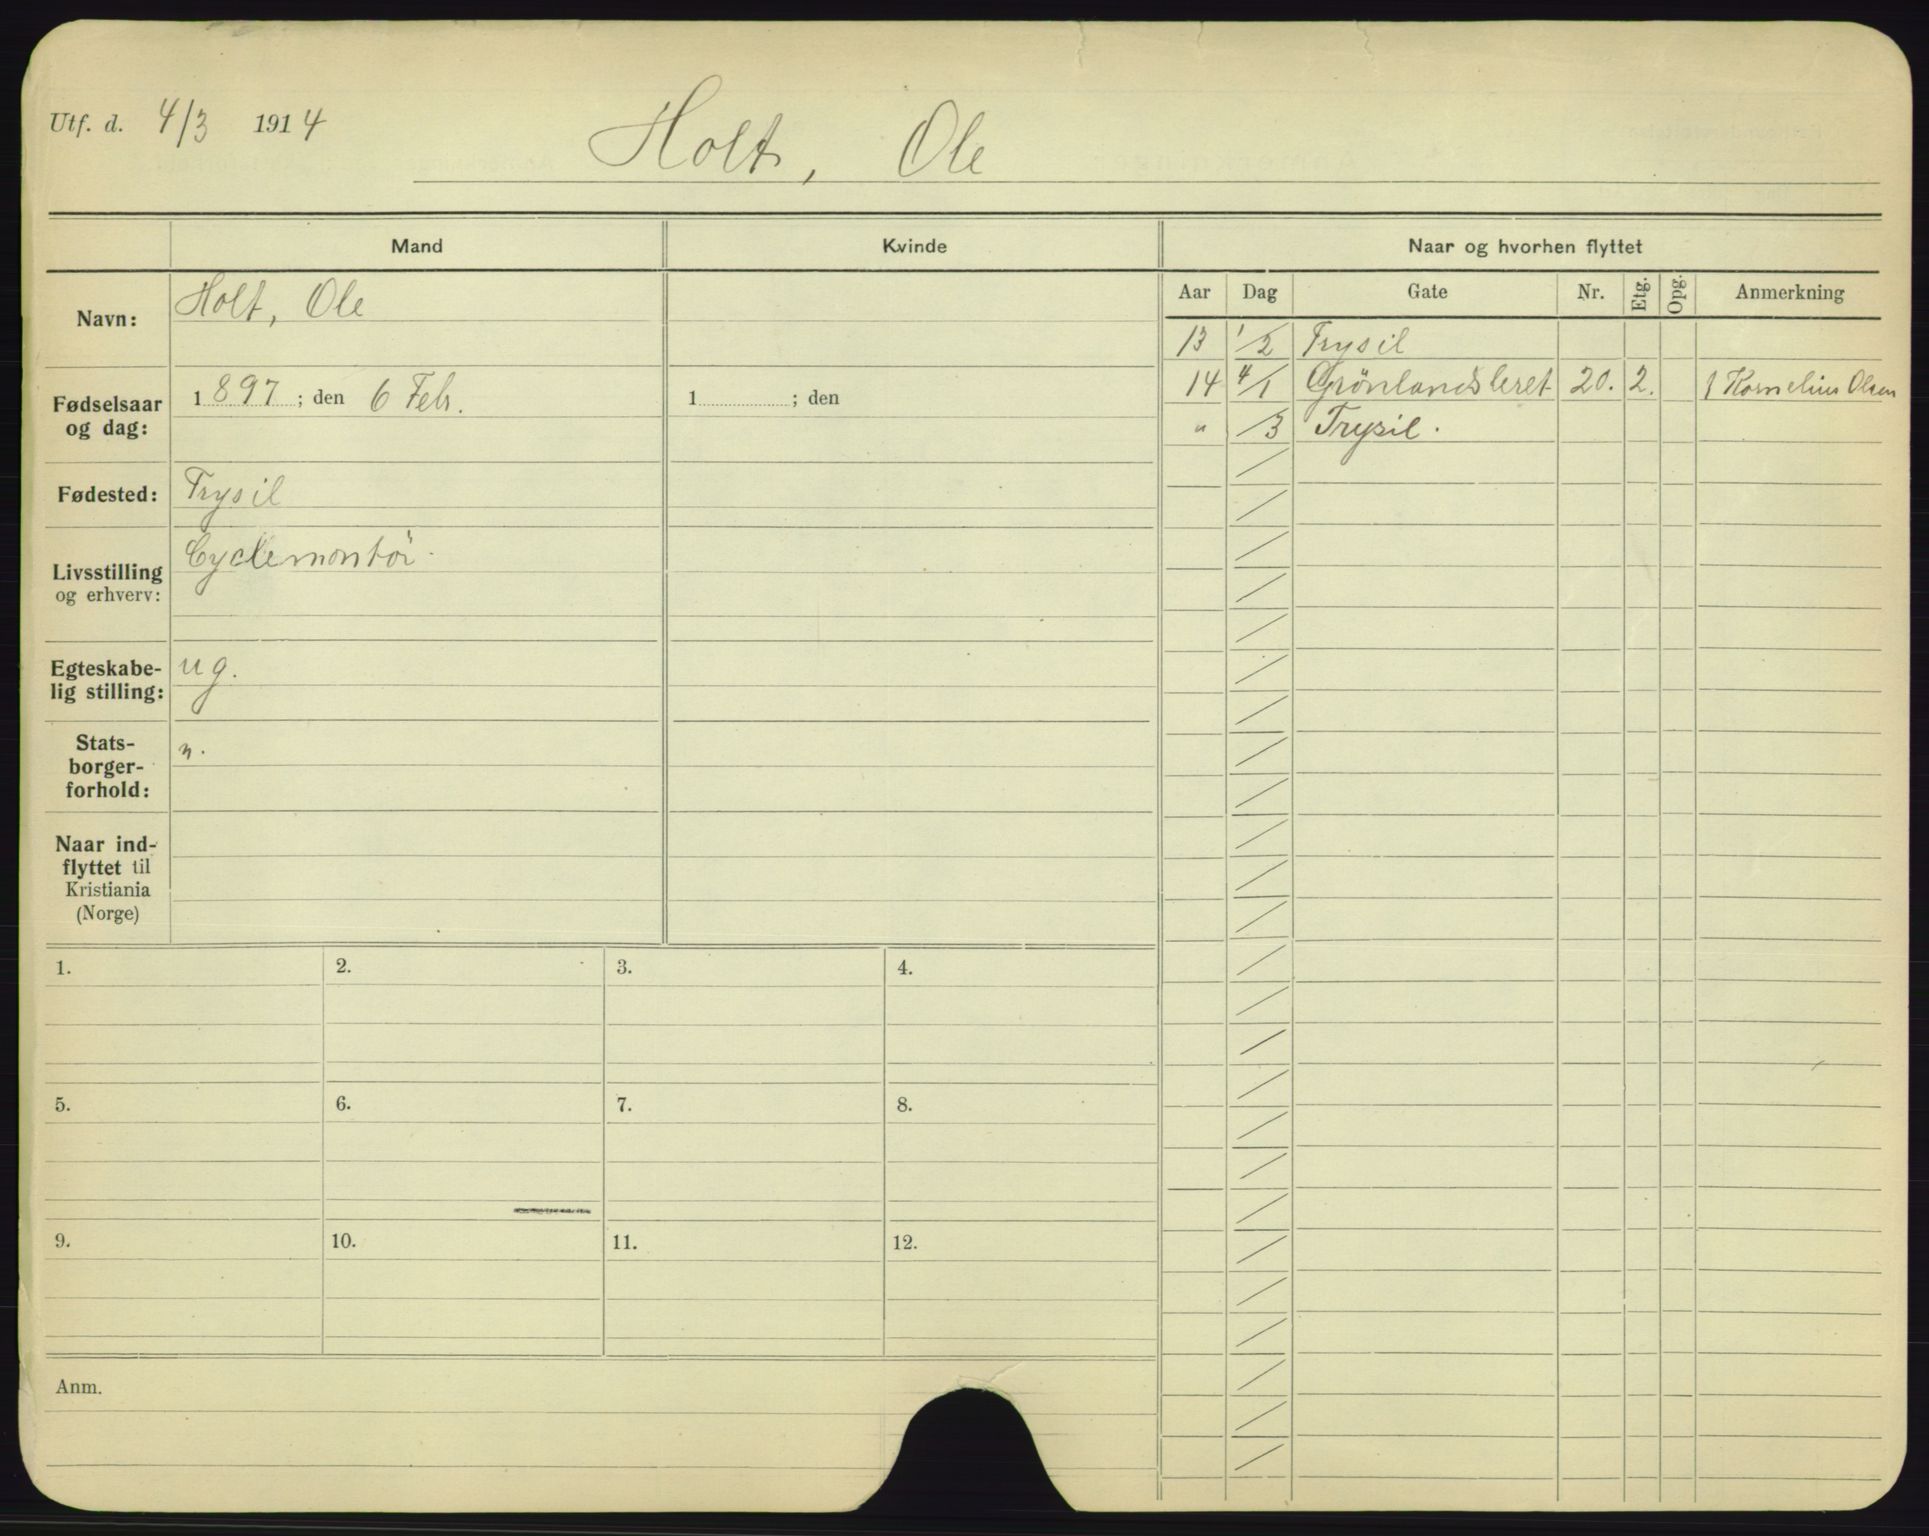 Utf. d. 4/3 1914
Holt, Ole
Mand
Kvinde
Naar og hvorhen flyttet
Navn:
Holt, Ole
Fødselsaar og dag:
1897; den 6 Febr.
1 ; den
Fødested:
Trysil
Livsstilling og erhverv:
Cyclemontör
Egteskabelig stilling:
ug.
Statsborgerforhold:
n.
Naar indflyttet til Kristiania (Norge)
Aar Dag Gate Nr. Etg. Opg. Anmerkning
13 1/2 Trysil
14 4/1 Grönlandsleret 20. 2. Kornelius Olsen
" /3 Trysil.
1. 2. 3. 4.
5. 6. 7. 8.
9. 10. 11. 12.
Anm.